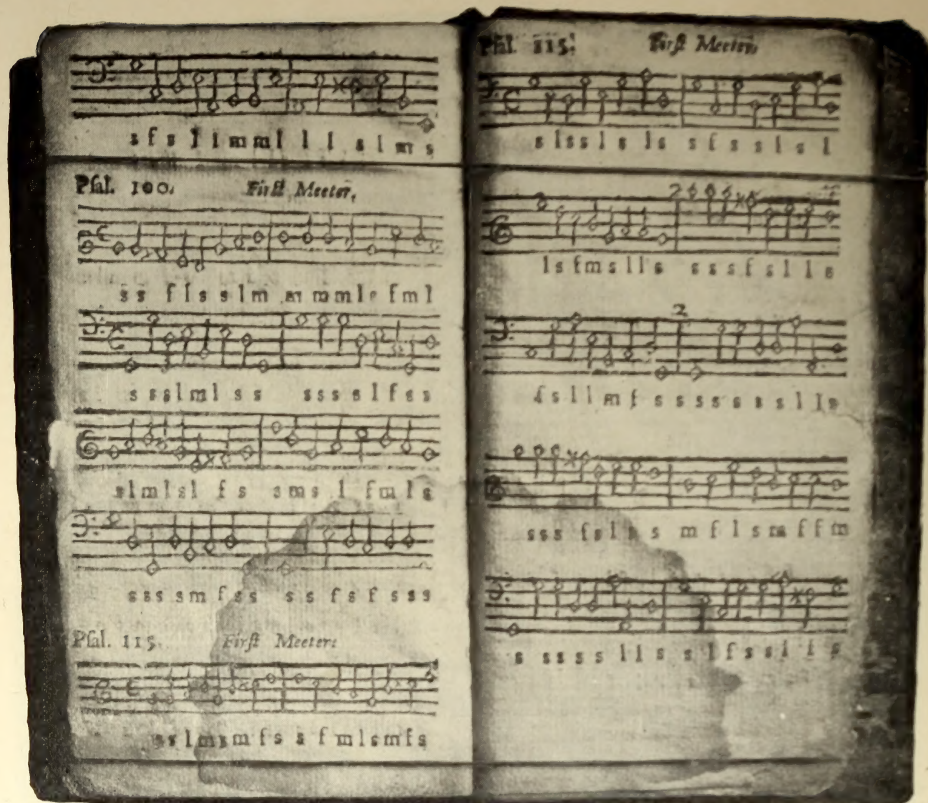 s f s l l m m l l l s l m s
Psal. 100. First Meeter,
s s f l s s l m m m m l s f m l
s s s l m l s s s s s s l f s s
s l m l s l f s s m s l f m l s
s s s s m f s s s s f s f s s s
Psal. 115. First Meeter:
s s l m s m f s s f m l s m f s
Psal. 115. First Meeter,
s l s s l s l s s f s s l s l
l s f m s l l s s s s f s l l s
2
f s l l m f s s s s s s s l l s
s s s f s l s s m f l s m f f m
s s s s s l l s s l f s s l l s